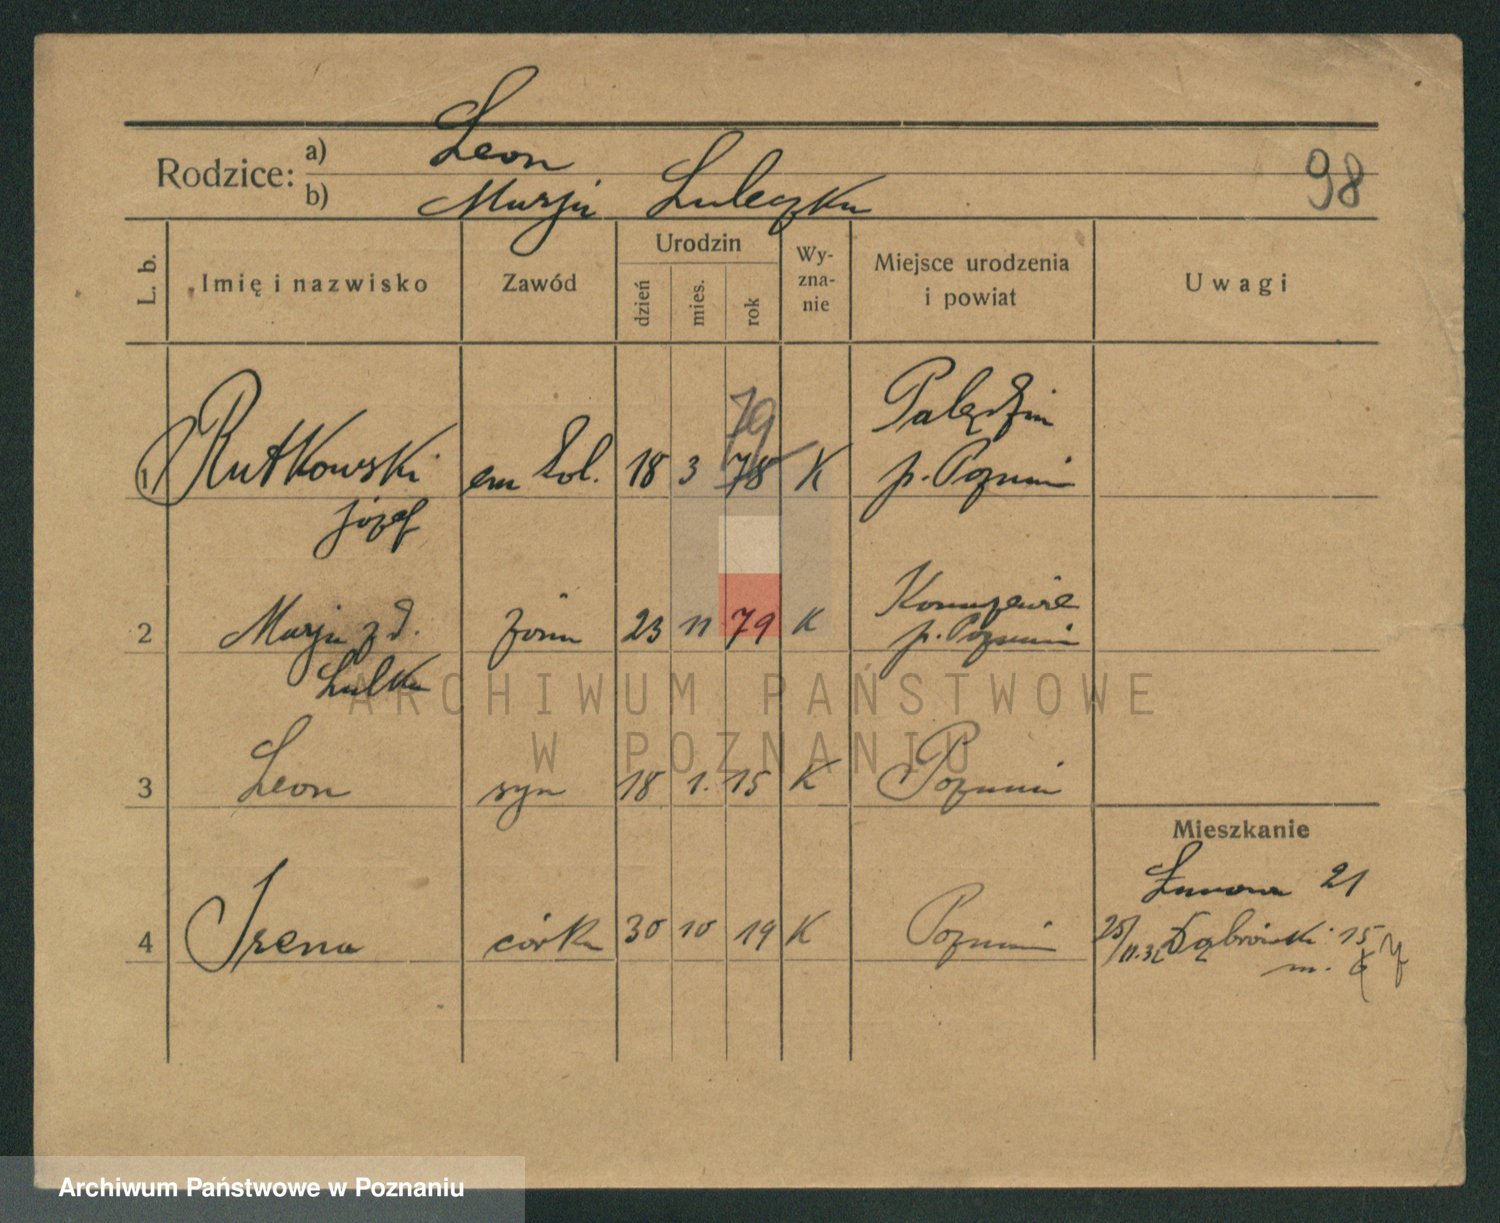 Rodzice: a) Leon
b) Marja Luleczka
98
L. b.
Imię i nazwisko
Zawód
Urodzin
dzień
mies.
rok
Wy-
zna-
nie
Miejsce urodzenia
i powiat
Uwagi
79
1 Rutkowski em kol. 18 3 78 K
Józef
Palędzin
p. Poznań
2 Marja z d. żona 23 11 79 K
Lulka
p. Poznań
ARCHIWUM PAŃSTWOWE
W POZNANIU
3 Leon syn 18 1. 15 K Poznań
Mieszkanie
21
4 Irena córka 30 10 19 K Poznań
25/11.32 Dąbrowski 15
m. 6
Archiwum Państwowe w Poznaniu